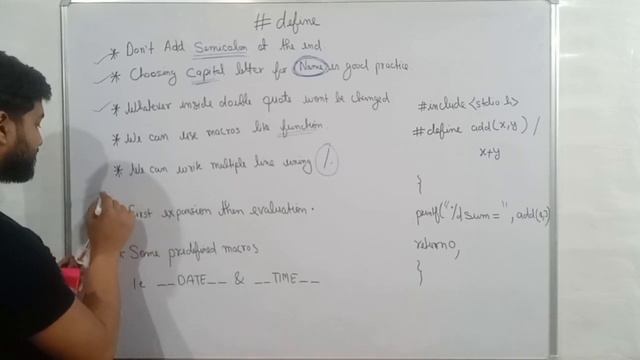 # define
* Don't Add Semicolon at the end
* Choosing Capital letter for Name is good practice
* Whatever inside double quote wont be changed
* We can use macros like function
* We can write multiple line using /.
First expansion then evaluation.
* Some predefined macros
i.e __DATE__ & __TIME__
#include <stdio h>
# define add(x,y) /
x+y
{
printf("%d sum = ", add(
return 0,
}